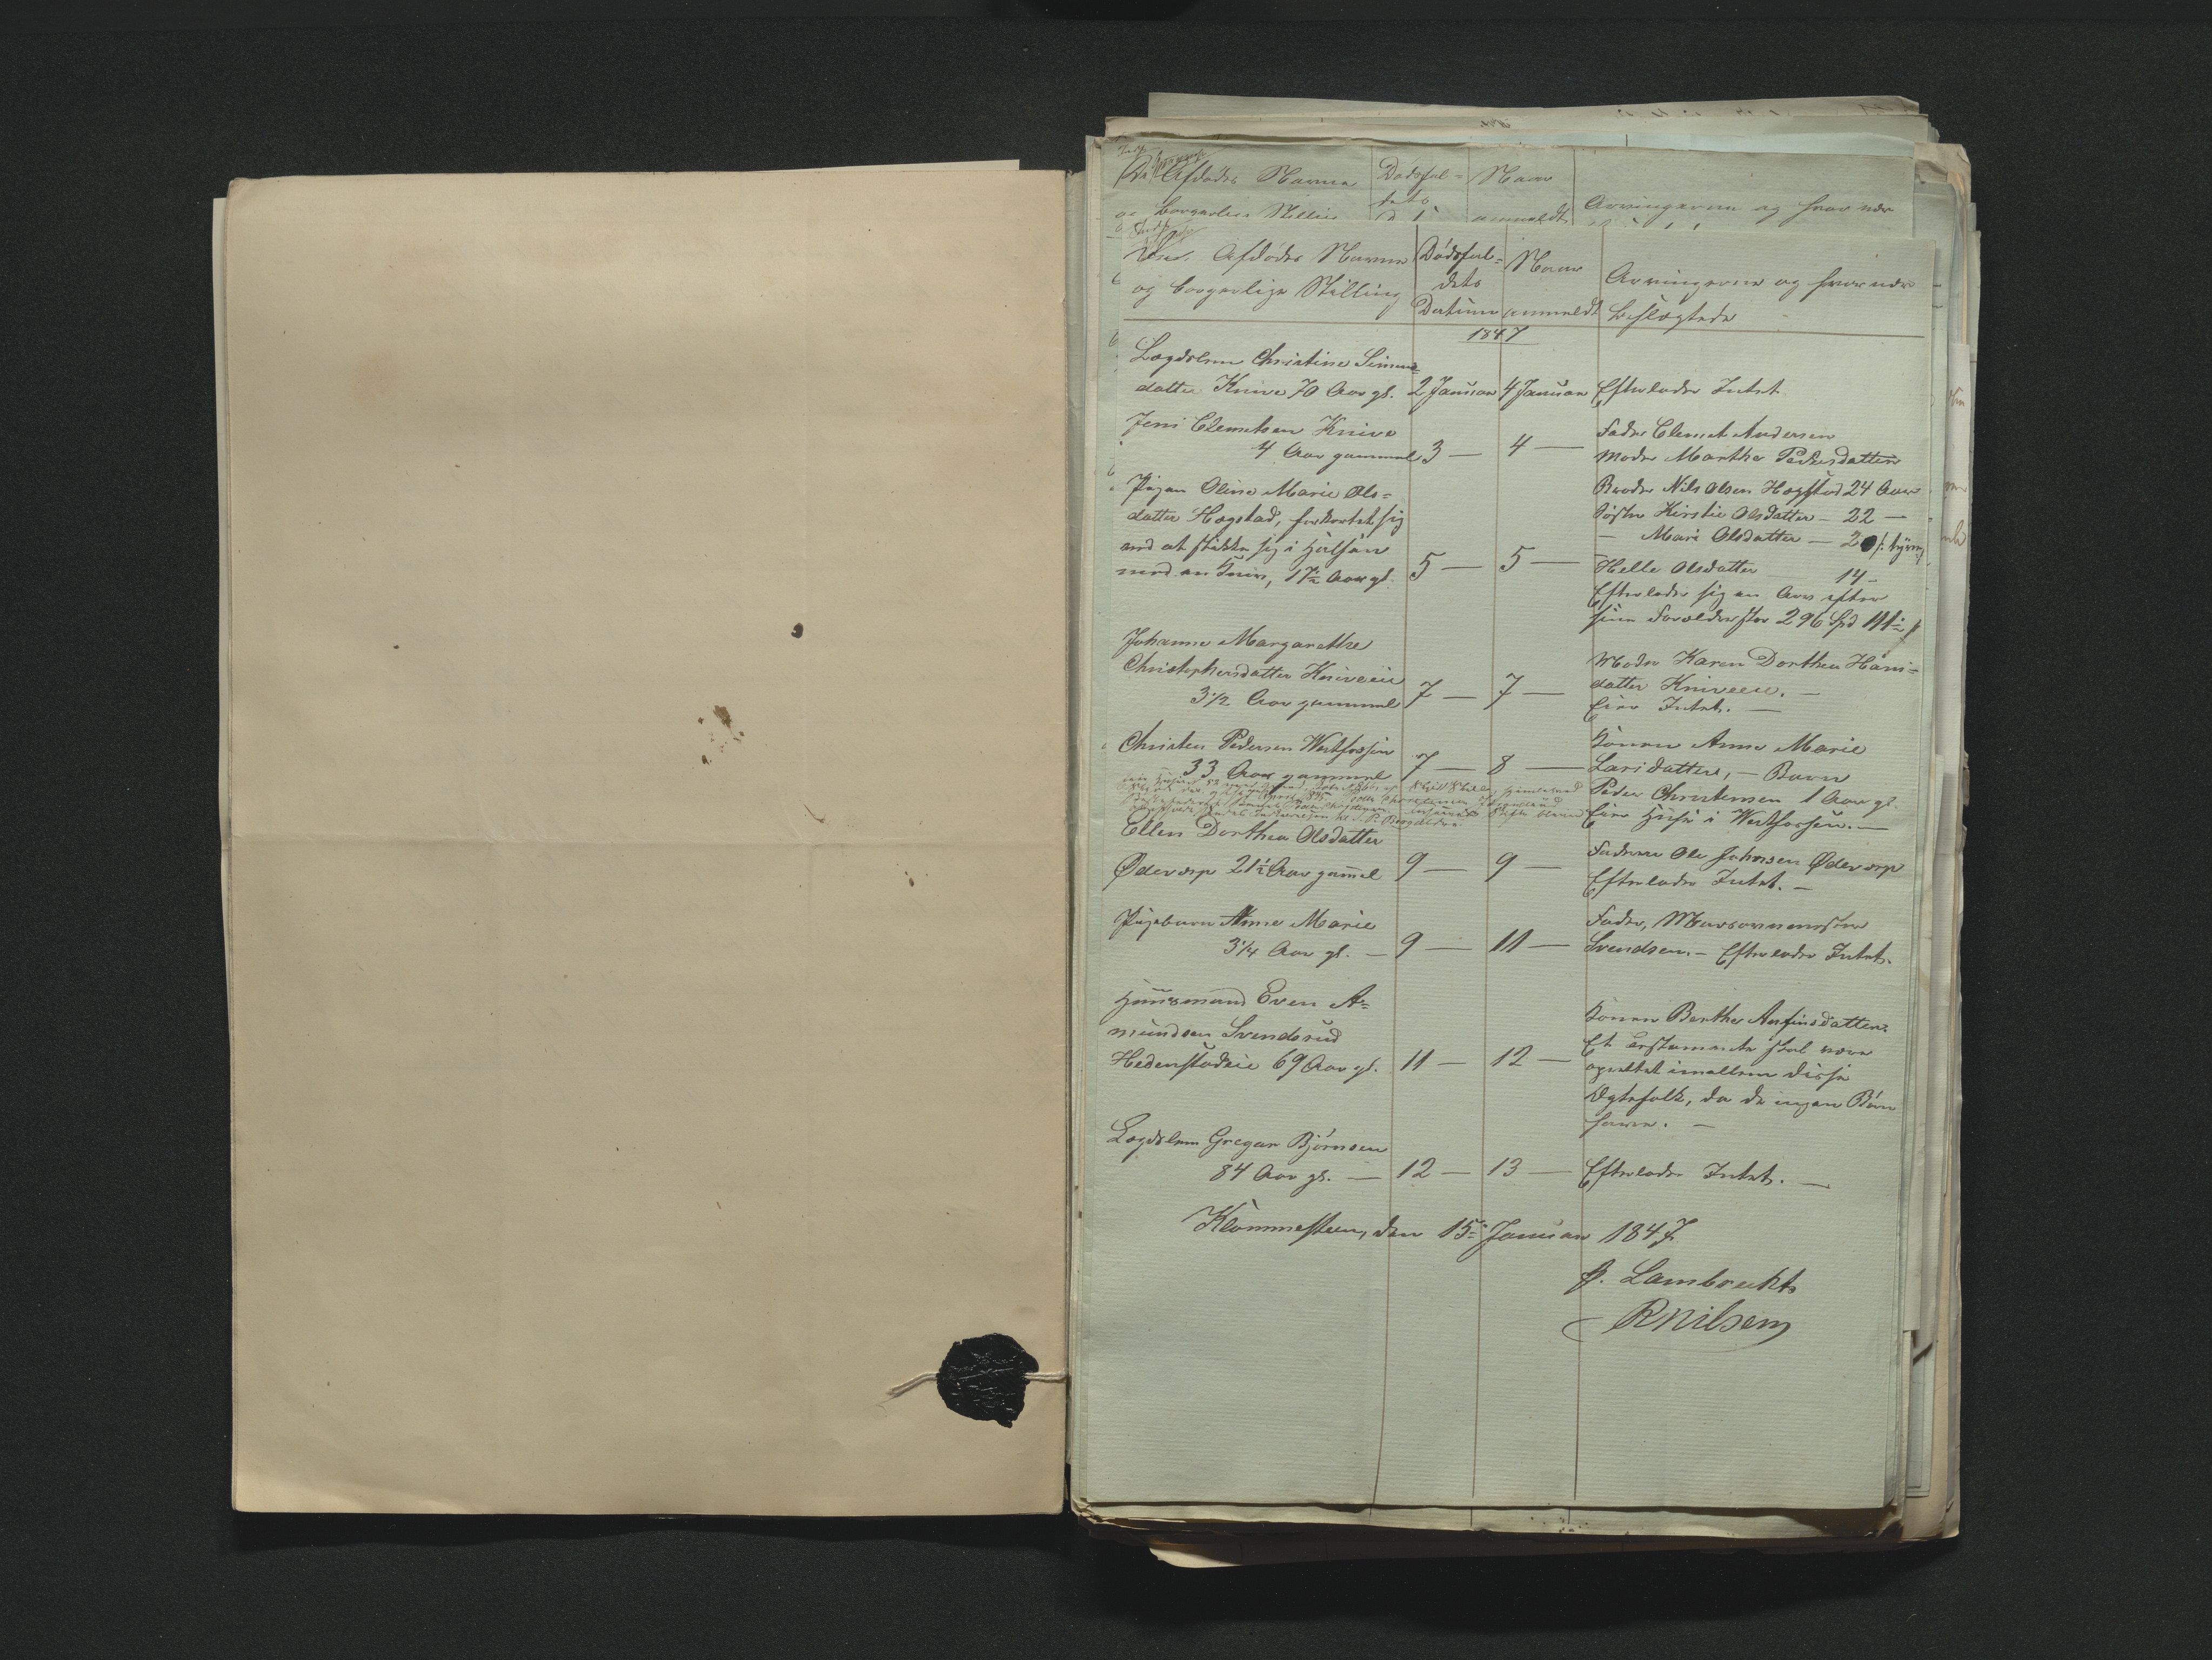 Afdødes Navne
Dødsfal=
Naar
og borgerlige Stilling
dets
anmeldt
Arvingerne og hvor nær
Afdødes Navne
og borgerlige Stilling
Dødsfal=
dets
Datum
Naar
anmeldt
Arvingerne og hvor nær
beslægtede
1847
Lægdslem Christine Simens
datter Knive 70 Aar gl.
2 Januar
4 Januar
Efterlader Intet
Jens Clemetsen Knive
4 Aar gammel
3 —
4 —
Fader Clemet Andersen
Moder Marthe Pedersdatter
Pigen Oline Marie Ols=
datter Hogstad, forkortet sig
ved at stikke sig i Halsen
med en Kniv, 17½ Aar gl.
5 —
5 —
Broder Nils Olsen Hogstad 24 Aar
Søster Kirstie Olsdatter — 22 —
— Mari Olsdatter — 20
Helle Olsdatter 14 —
Efterlader sig en Arv efter
sine Forældre stor 296 Spd
Johanne Margarethe
Christophersdatter Kniveeie
3 1/2 Aar gammel
7 —
7 —
Moder Karen Dorthea Hans=
datter Kniveeie. —
Eier Intet. —
Christen Pedersen Westfossen
33 Aar gammel
7 —
8 —
Konen Anne Marie
Larsdatter, — Barn
Peder Christensen 1 Aar gl.
Eier Huse i Westfossen. —
Ellen Dorthea Olsdatter
Ødeværp 21½ Aar gamel
9 —
9 —
Faderen Ole Johnsen Ødeværp
Efterlader Intet. —
Pigebarn Anne Marie
3 1/4 Aar gl. —
9 —
11 —
Fader,
Svendsen. — Efterlader Intet.
Huusmand Even A=
mundsen Svendsrud
Hedenstadeie 69 Aar gl.
11 —
12 —
Konen Berthe Anfinsdatter.
Et Testamente skal være
oprettet imellem disse
Ægtefolk, da de ingen Børn
have. —
Lægdslem Gregar Bjørnsen
84 Aar gl. —
12 —
13 —
Efterlader Intet. —
Klommesteen, den 15 Januar 1847
P. Lambrechts
R Nilsen